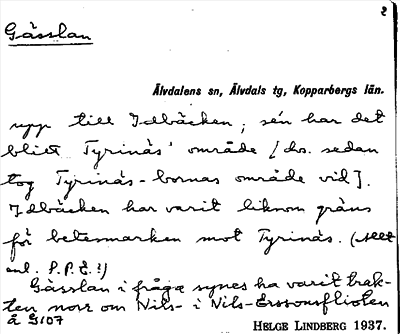 2
Gässlan
Älvdalens sn, Älvdals tg, Kopparbergs län.
upp till Idbäcken; sen har det
blivit Tyrinäs' område [dvs. sedan
tog Tyrinäs-bornas område vid].
Idbäcken har varit liksom gräns
för betesmarken mot Tyrinäs. (Allt
enl. P.P.E.?)
Gässlan i fråga synes ha varit trak-
ten norr om Nils- i Nils-Erssonsflioten
å S107
HELGE LINDBERG 1937.